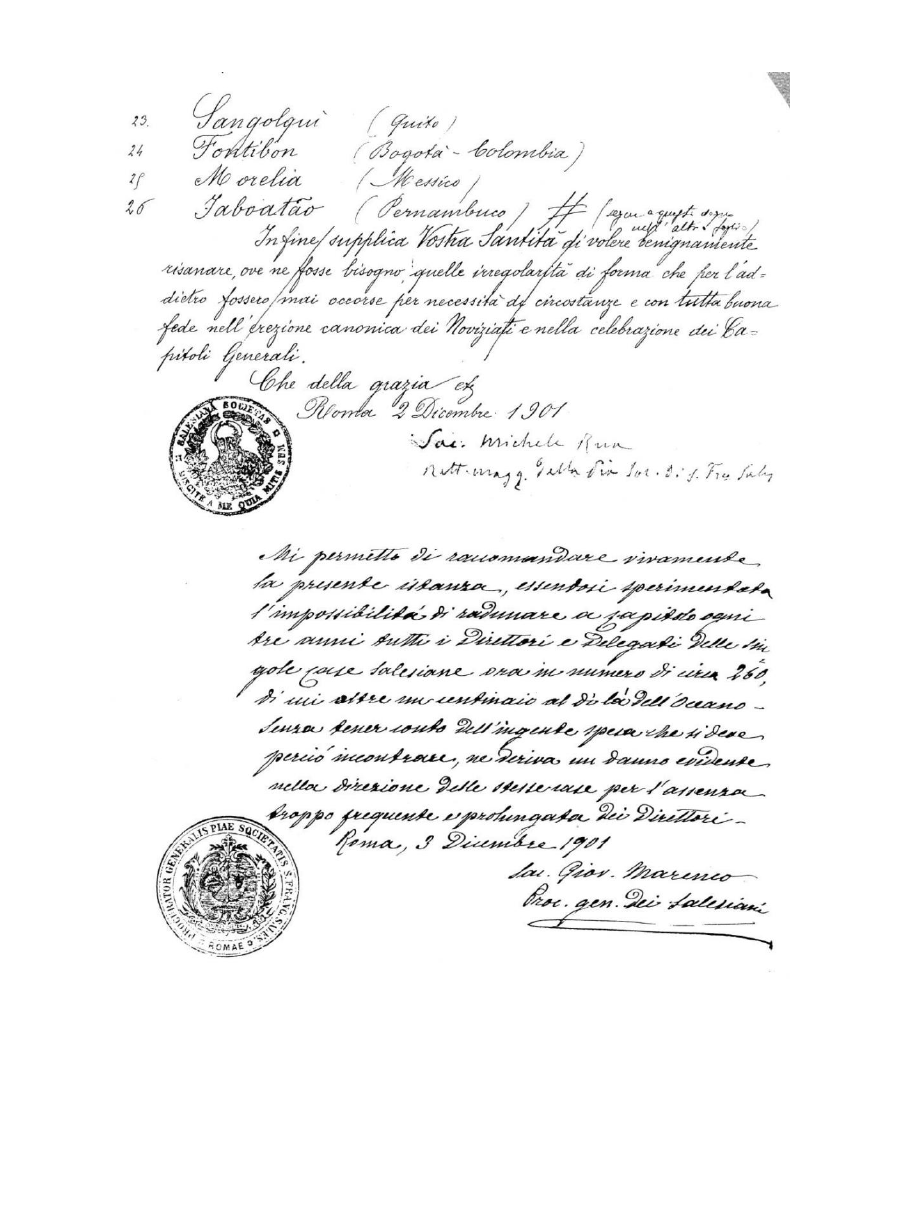 23. Sangolquì (Quito)
24 Fontibon (Bogotà - Colombia)
25 Morelia (Messico)
26 Jaboatão (Pernambuco) # (segue a questo segno
nell'altro foglio)
Infine supplica Vostra Santità di volere benignamente
risanare, ove ne fosse bisogno quelle irregolarità di forma che per l'ad=
dietro fossero mai occorse per necessità di circostanze e con tutta buona
fede nell'erezione canonica dei Noviziati e nella celebrazione dei Ca=
pitoli Generali.
Che della grazia
Roma 2 Dicembre 1901
Sac. Michele Rua
Rett. magg. della Pia Soc. di S. Fr. Sales
SALESIANA SOCIETAS
DISCITE A ME QUIA MITIS
Mi permetto di raccomandare vivamente
la presente istanza, essendosi sperimentata
l'impossibilità di radunare a capitolo ogni
tre anni tutti i Direttori e Delegati delle sin
gole case salesiane ora in numero di circa 260,
di cui oltre un centinaio al di là dell'Oceano -
Senza tener conto dell'ingente spesa che si deve
perciò incontrare, ne deriva un danno evidente
nella direzione delle stesse case per l'assenza
troppo frequente e prolungata dei Direttori -
Roma, 3 Dicembre 1901
Sac. Giov. Marenco
Proc. gen. dei Salesiani
PROCURATOR GENERALIS PIAE SOCIETATIS S. FRANC. SALES.
ROMAE